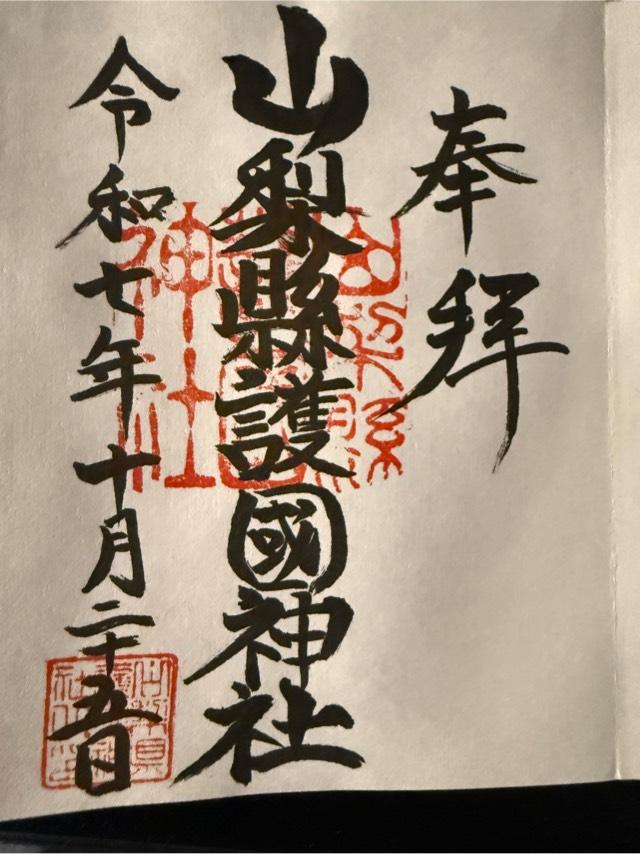 奉拜
山梨縣護國神社
令和七年十月二十五日